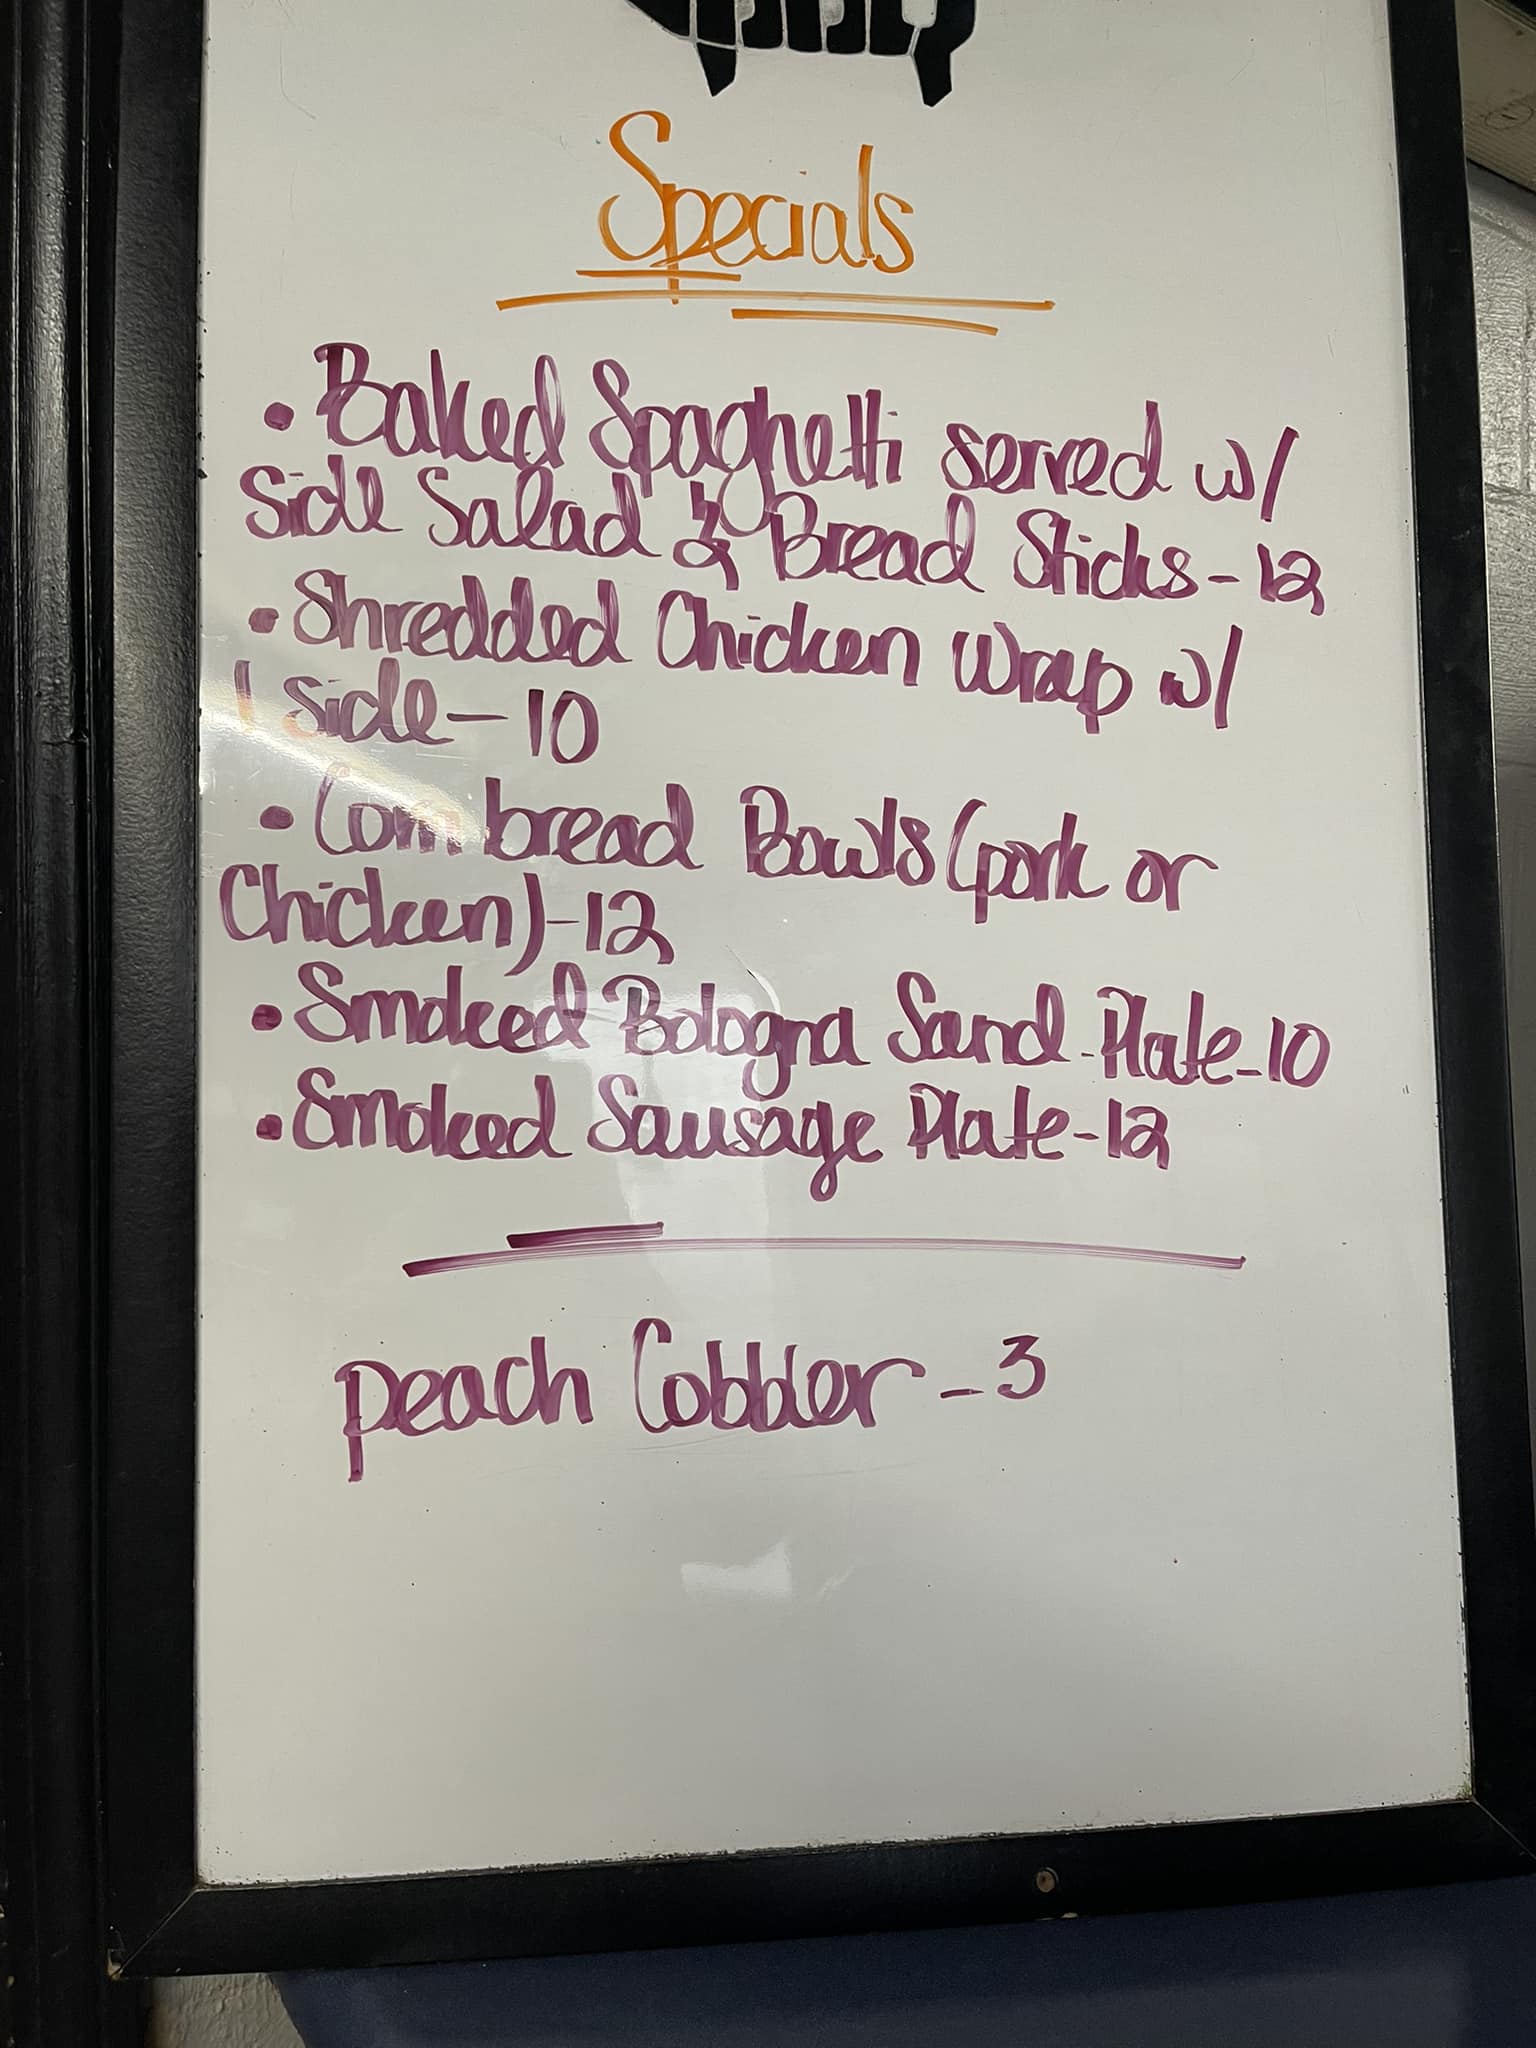 Specials
• Baked Spaghetti served w/
Side Salad & Bread Sticks - 12
• Shredded Chicken Wrap w/
1 side - 10
• Corn bread Bowls (pork or
Chicken) - 12
• Smoked Bologna Sand. Plate - 10
• Smoked Sausage Plate - 12
peach Cobbler - 3